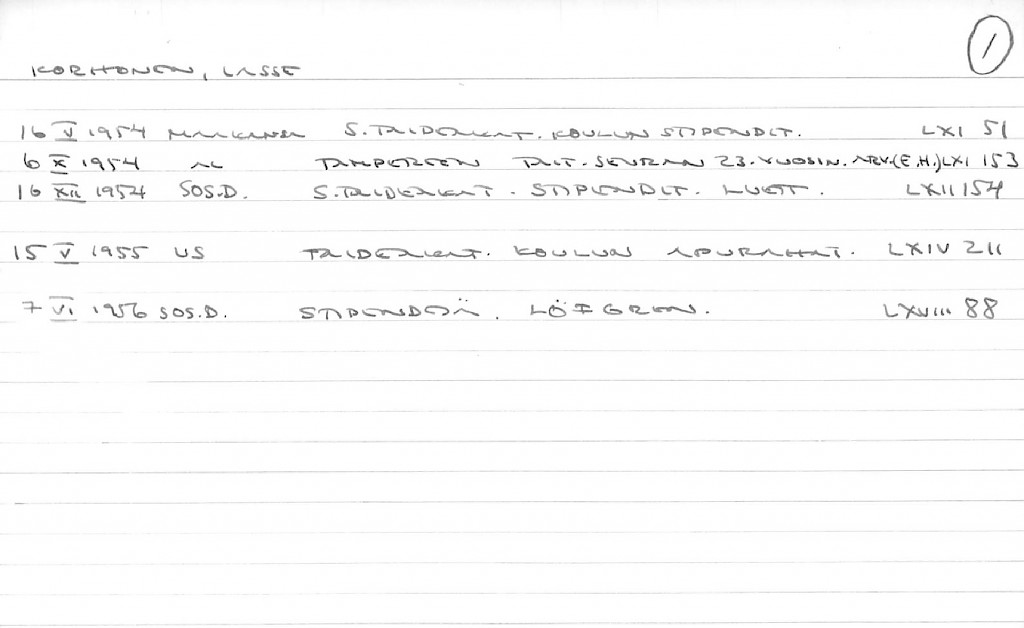 1
KORHONEN, LASSE
16 V 1954 MAAKANSA S. TAIDEAKAT. KOULUN STIPENDIT. LXI 51
6 X 1954 AL TAMPEREEN TAIT. SEURAN 23. VUOSIN. ARV. (E.H.) LXI 153
16 XII 1954 SOS.D. S. TAIDEAKAT. STIPENDIT. LUETT. LXII 154
15 V 1955 US TAIDEAKAT. KOULUN APURAHAT. LXIV 211
7 VI 1956 SOS.D. STIPENDEJÄ. LÖFGREN. LXVIII 88